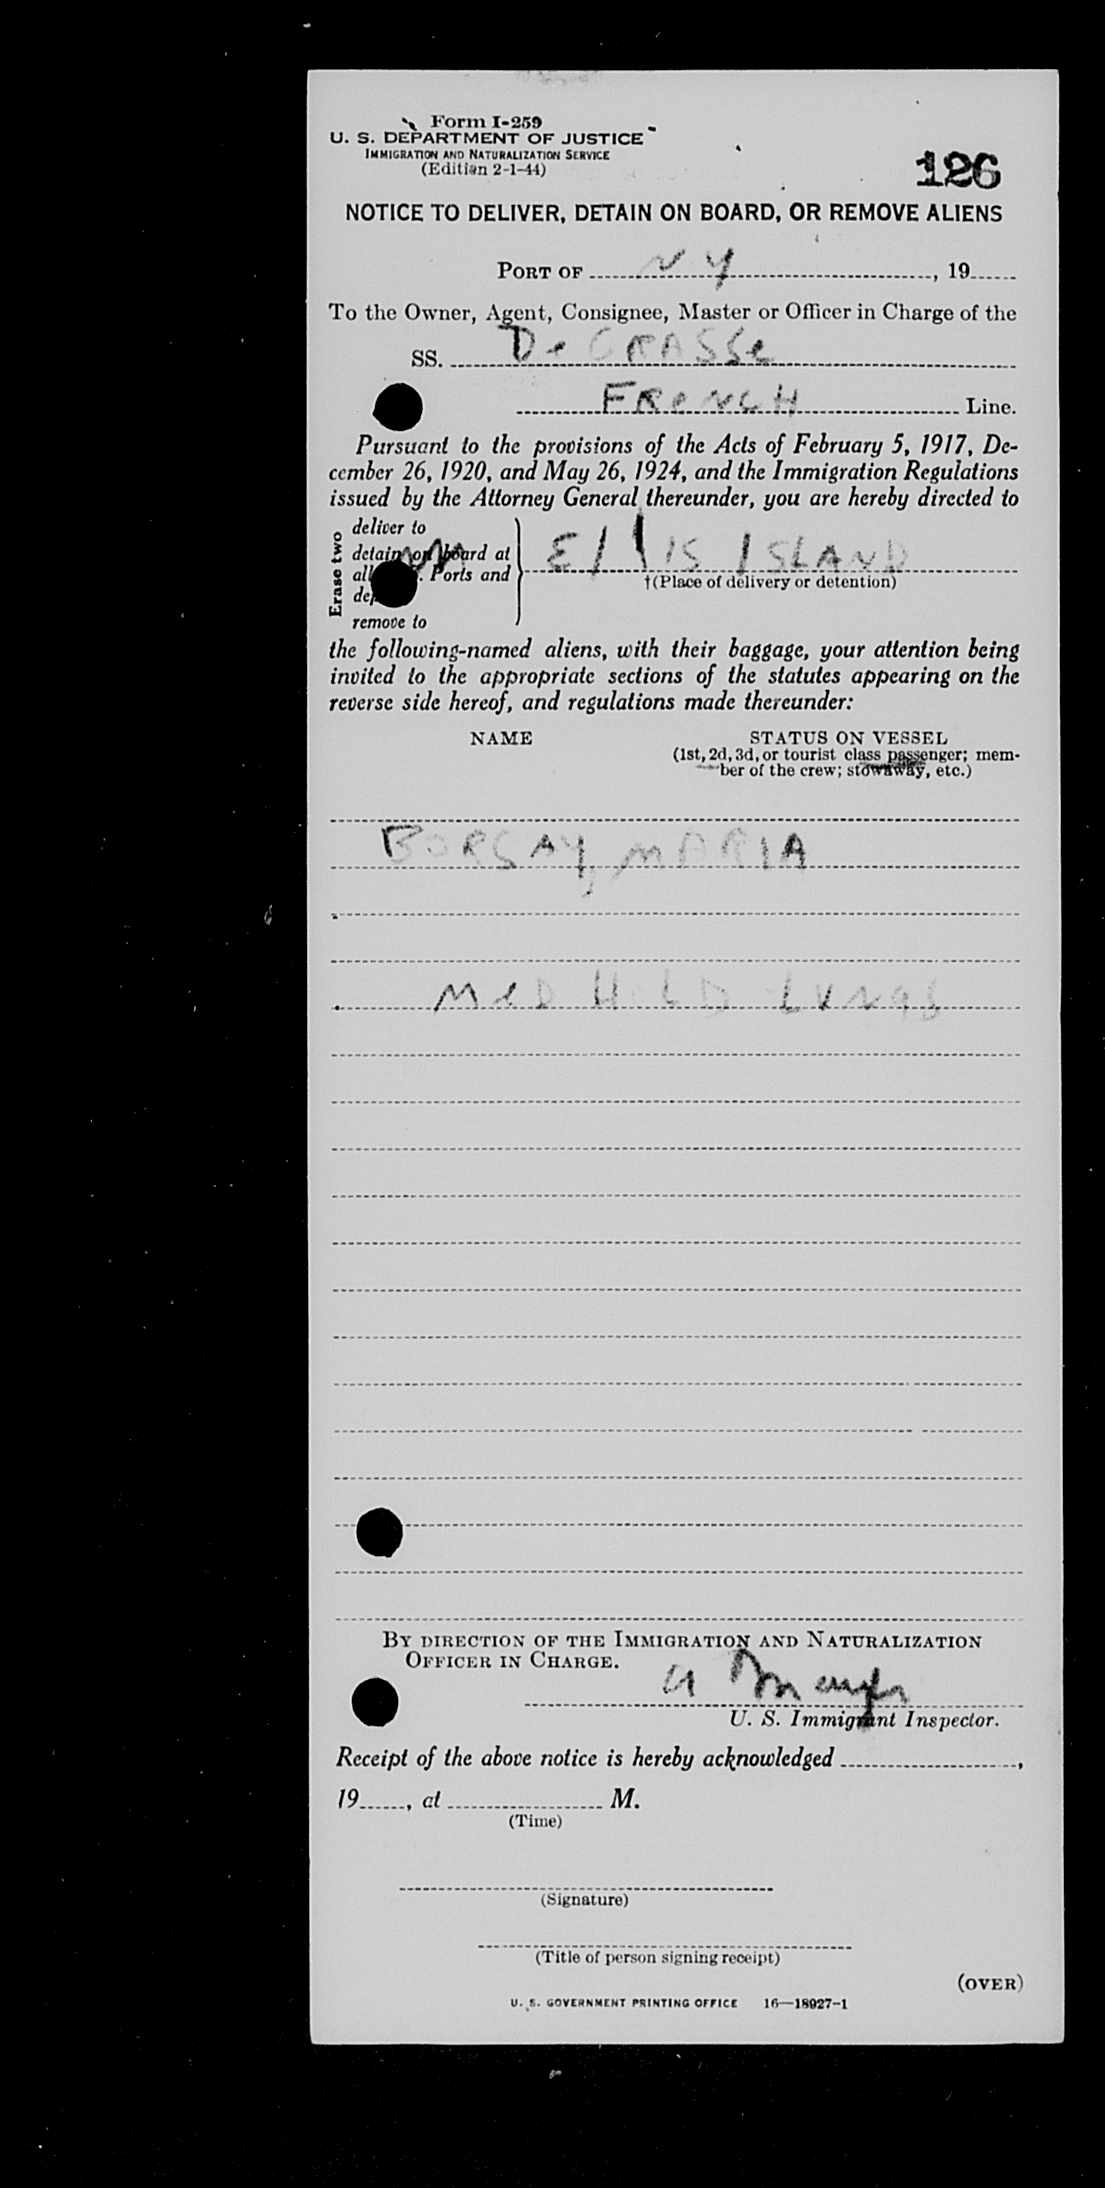 Form I-259
U. S. DEPARTMENT OF JUSTICE
IMMIGRATION AND NATURALIZATION SERVICE
(Edition 2-1-44)
126
NOTICE TO DELIVER, DETAIN ON BOARD, OR REMOVE ALIENS
PORT OF N Y , 19
To the Owner, Agent, Consignee, Master or Officer in Charge of the
SS. De GRASSe
FReNCH Line.
Pursuant to the provisions of the Acts of February 5, 1917, De-
cember 26, 1920, and May 26, 1924, and the Immigration Regulations
issued by the Attorney General thereunder, you are hereby directed to
Erase two
deliver to
detain on board at
all Ports and
remove to
EllIS ISLAND
†(Place of delivery or detention)
the following-named aliens, with their baggage, your attention being
invited to the appropriate sections of the statutes appearing on the
reverse side hereof, and regulations made thereunder:
NAME
STATUS ON VESSEL
(1st, 2d, 3d, or tourist class passenger; mem-
ber of the crew; stowaway, etc.)
BORSAY, MARIA
MeD HOLD LUNGS
BY DIRECTION OF THE IMMIGRATION AND NATURALIZATION
OFFICER IN CHARGE.
U. S. Immigrant Inspector.
Receipt of the above notice is hereby acknowledged ,
19 , at M.
(Time)
(Signature)
(Title of person signing receipt)
(OVER)
U. S. GOVERNMENT PRINTING OFFICE 16—18927-1